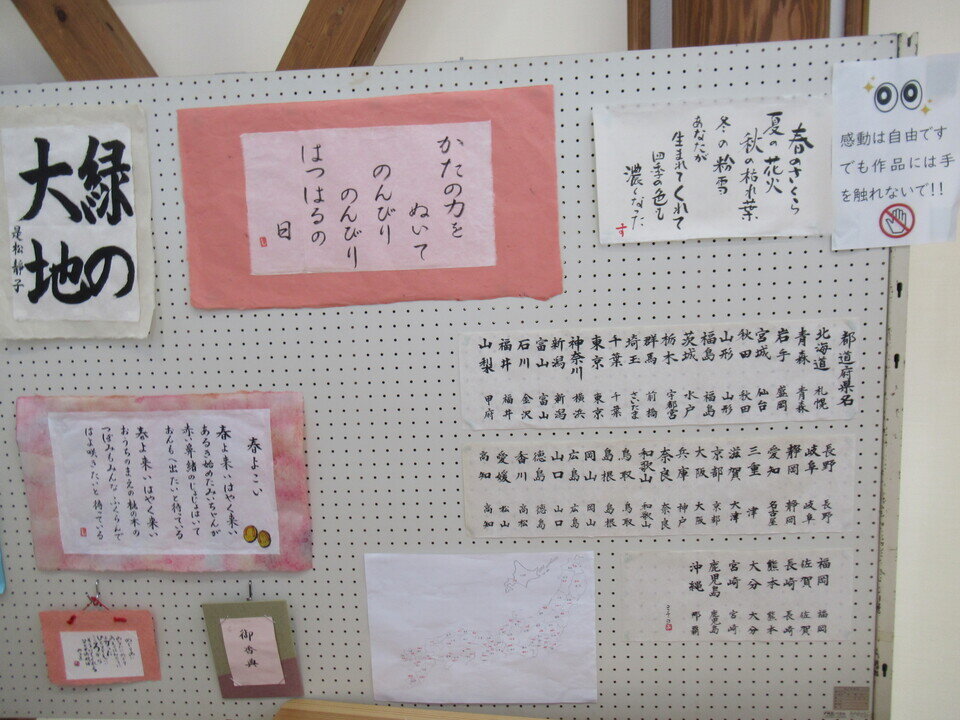 緑の
大地
是松静子
かたの力を
ぬいて
のんびり
のんびり
はつはるの
日
春のさくら
夏の花火
秋の枯れ葉
冬の粉雪
あなたが
生まれてくれて
四季の色も
濃くなった
す
感動は自由です
でも作品には手
を触れないで!!
都道府県名
北海道 札幌
青森 青森
岩手 盛岡
宮城 仙台
秋田 秋田
山形 山形
福島 福島
茨城 水戸
栃木 宇都宮
群馬 前橋
埼玉 さいたま
千葉 千葉
東京 東京
神奈川 横浜
新潟 新潟
富山 富山
石川 金沢
福井 福井
山梨 甲府
長野 長野
岐阜 岐阜
静岡 静岡
愛知 名古屋
三重 津
滋賀 大津
京都 京都
大阪 大阪
兵庫 神戸
奈良 奈良
和歌山 和歌山
鳥取 鳥取
島根 島根
岡山 岡山
広島 広島
山口 山口
徳島 徳島
香川 高松
愛媛 松山
高知 高知
福岡 福岡
佐賀 佐賀
長崎 長崎
熊本 熊本
大分 大分
宮崎 宮崎
鹿児島 鹿児島
沖縄 那覇
春よこい
春よ来い はやく来い
あるき始めたみいちゃんが
赤い鼻緒のじょじょはいて
おんもへ出たいと待っている
春よ来い はやく来い
おうちのまえの桃の木の
つぼみもみんなふくらんで
はよ咲きたいと待っている
御香典